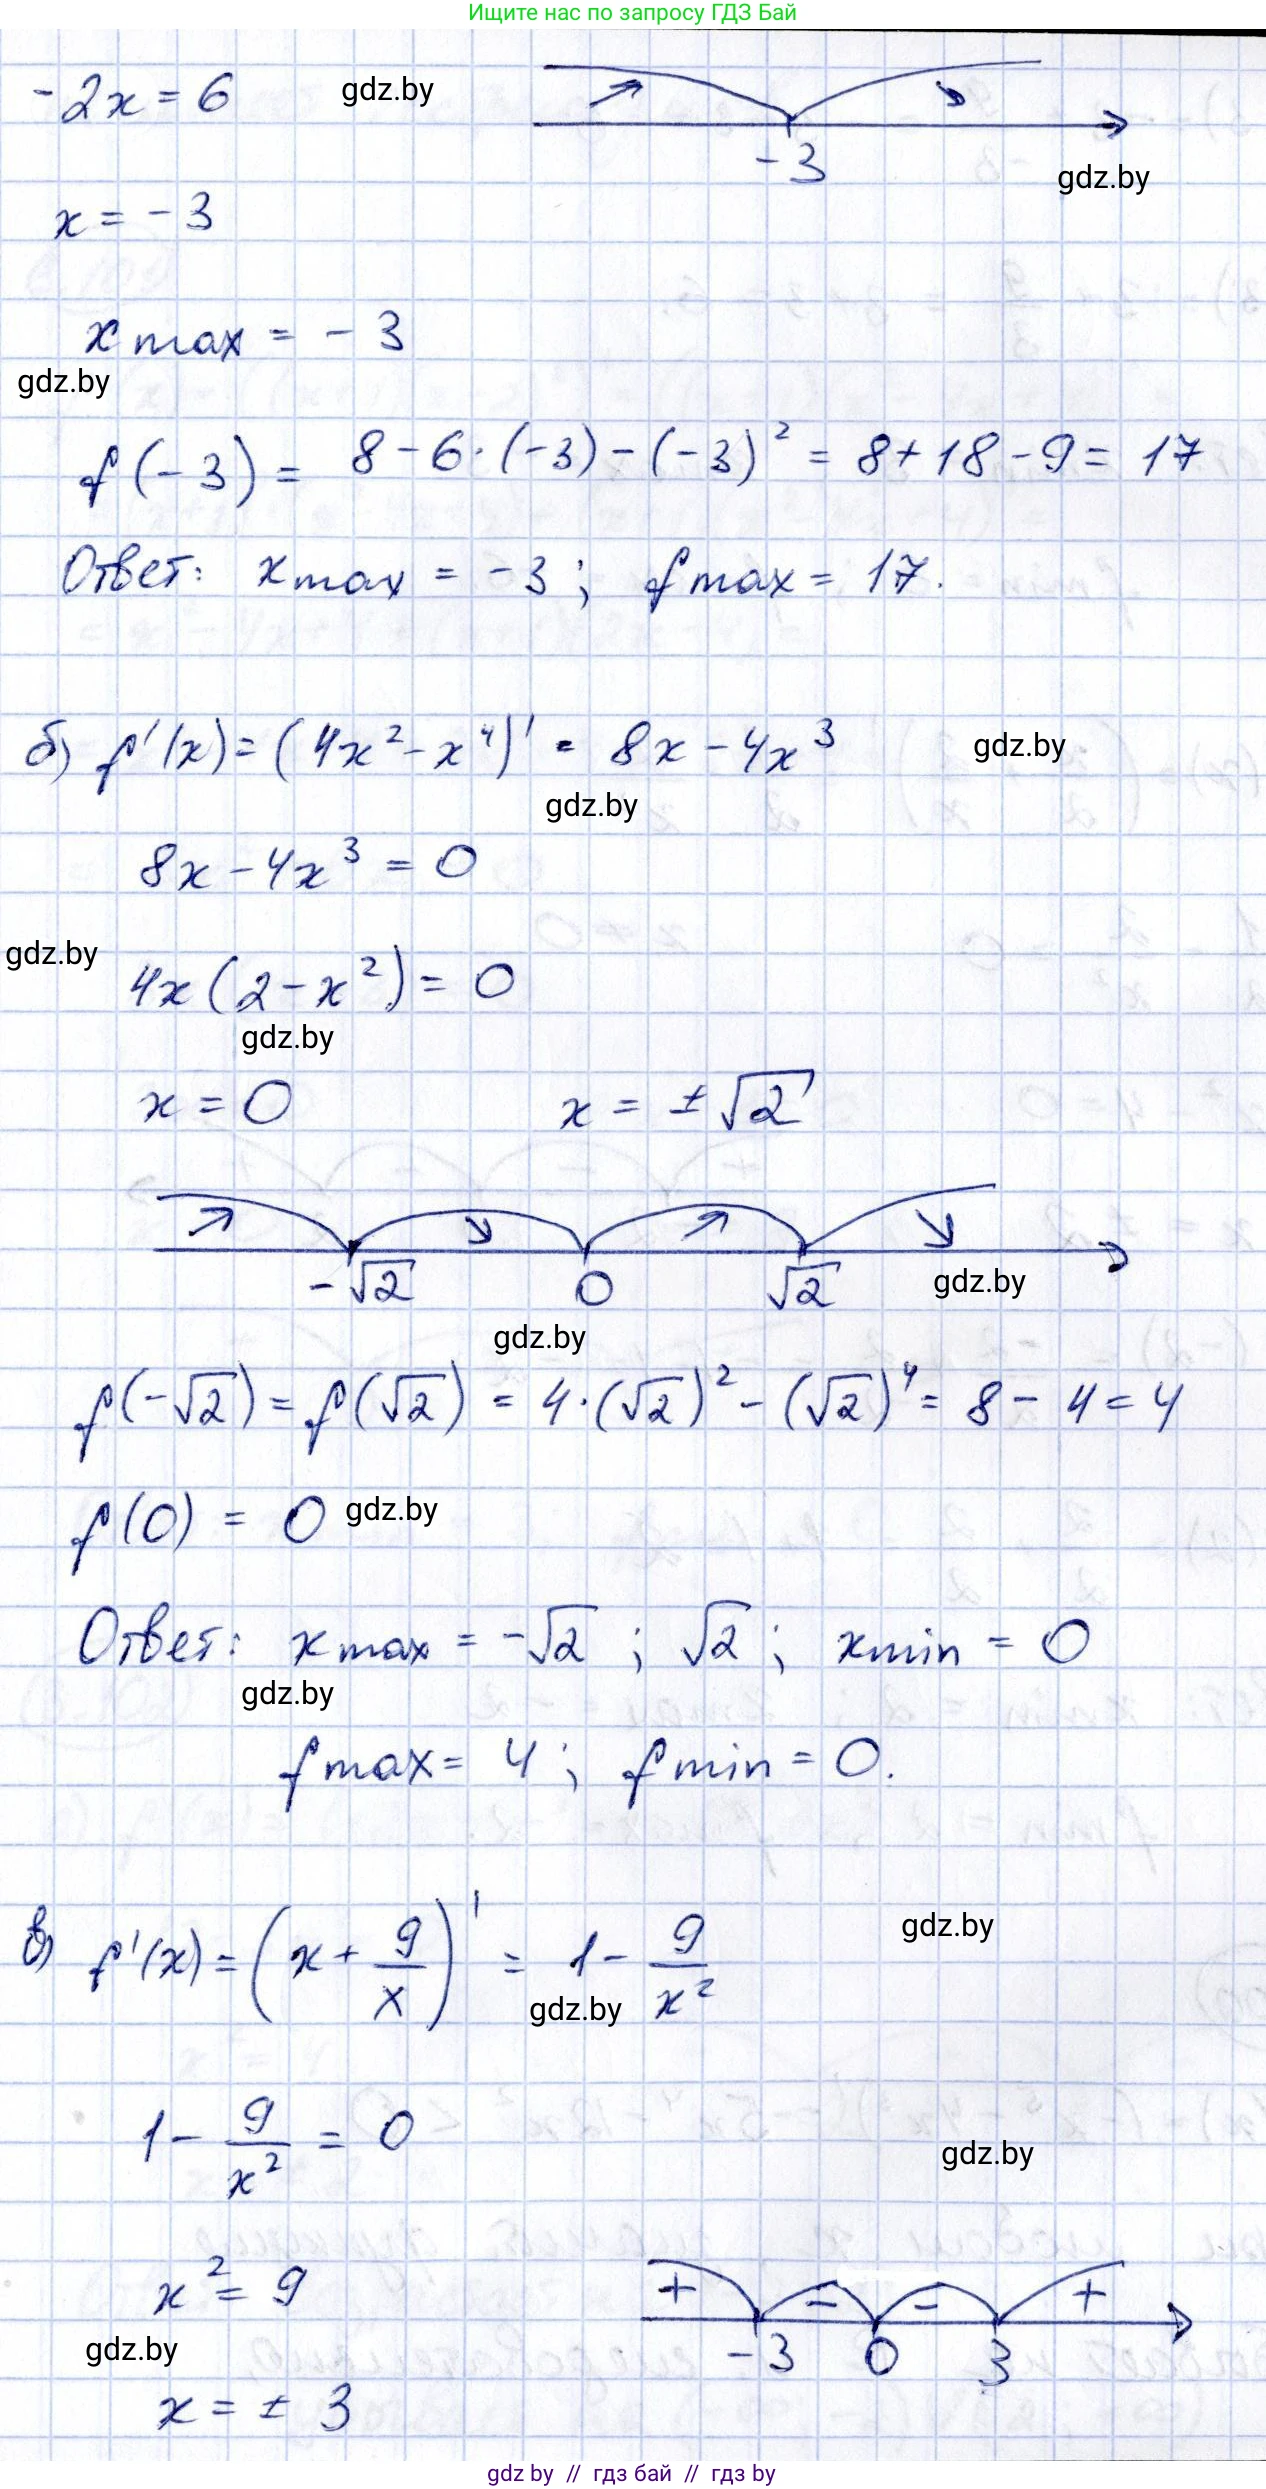 Ищите нас по запросу ГДЗ Бай
-2x = 6
gdz.by
-3
gdz.by
x = -3
x max = -3
gdz.by
f(-3) = 8 - 6·(-3) - (-3)² = 8 + 18 - 9 = 17
Ответ: x max = -3; f max = 17.
б) f'(x) = (4x² - x⁴)' = 8x - 4x³
gdz.by
gdz.by
8x - 4x³ = 0
gdz.by
4x(2 - x²) = 0
gdz.by
x = 0 x = ±√2
-√2 0 √2
gdz.by
gdz.by
f(-√2) = f(√2) = 4·(√2)² - (√2)⁴ = 8 - 4 = 4
f(0) = 0
gdz.by
Ответ: x max = -√2; √2; x min = 0
gdz.by
f max = 4; f min = 0.
в) f'(x) = (x + 9/x)' = 1 - 9/x²
gdz.by
gdz.by
1 - 9/x² = 0
gdz.by
x² = 9
+ - - +
-3 0 3
gdz.by
x = ± 3
gdz by // гдз бай // гдз by